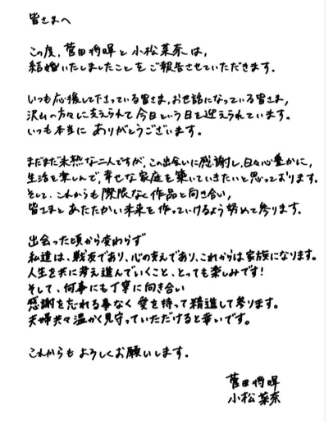 皆さまへ
この度、菅田将暉と小松菜奈は、
結婚いたしましたことをご報告させていただきます。
いつも応援して下さっている皆さま、お世話になっている皆さま、
沢山の方々に支えられて今日という日を迎えられています。
いつも本当に ありがとうございます。
まだまだ未熟な二人ですが、この出会いに感謝し、日々心豊かに、
生活を楽しんで、幸せな家庭を築いていきたいと思っております。
そして、これからも際限なく作品と向き合い、
皆さまとあたたかい未来を作っていけるよう努めて参ります。
出会った頃から変わらず
私達は、戦友であり、心の支えであり、これからは家族になります。
人生を共に考え進んでいくこと、とっても楽しみです!
そして、何事にも丁寧に向き合い
感謝を忘れる事なく 愛を持って精進して参ります。
夫婦共々温かく見守っていただけると幸いです。
これからも よろしくお願いします。
菅田将暉
小松菜奈